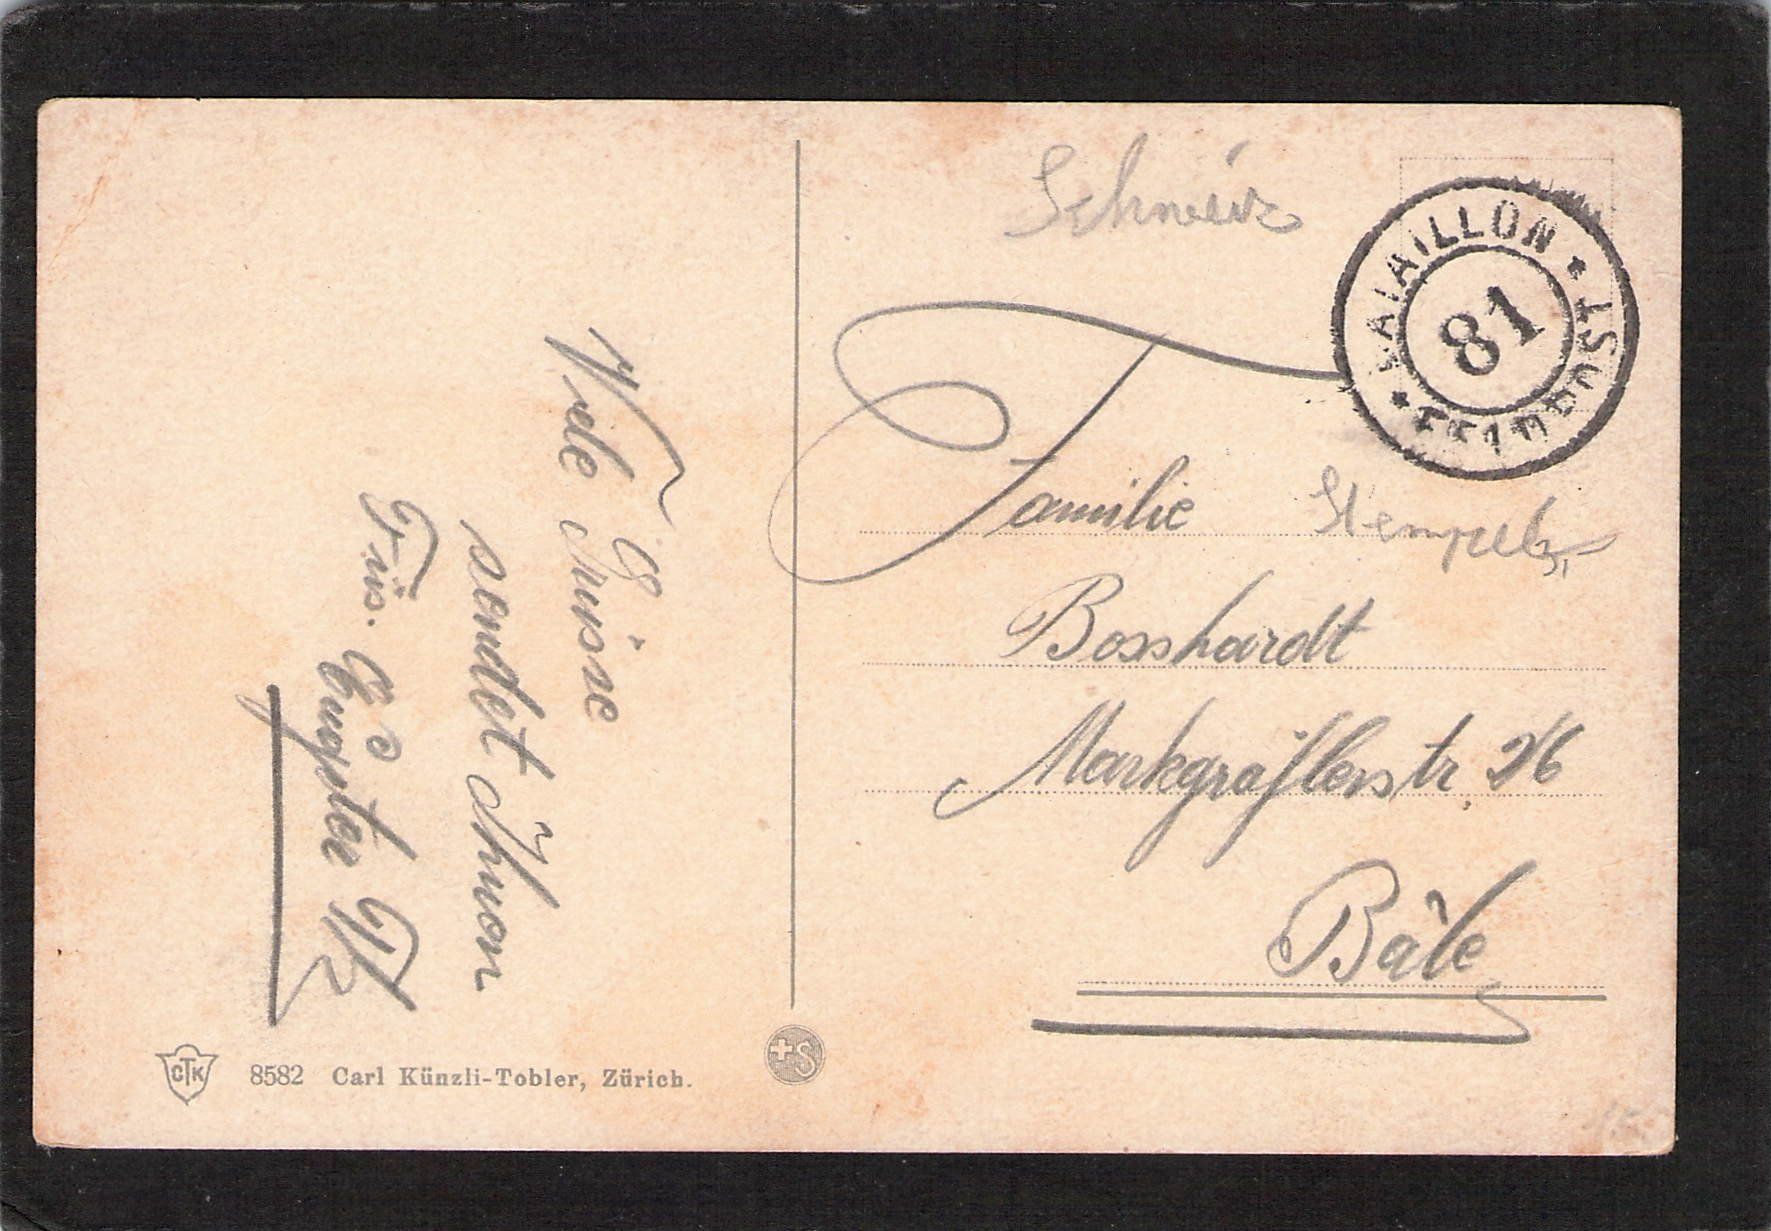 Schweiz
BATAILLON
81
FELDPOST
Familie
Stempel
Bosshardt
Markgräflerstr. 26
Bâle
Viele Grüsse
sendet Ihnen
Füs.
CTK 8582 Carl Künzli-Tobler, Zürich.
+S